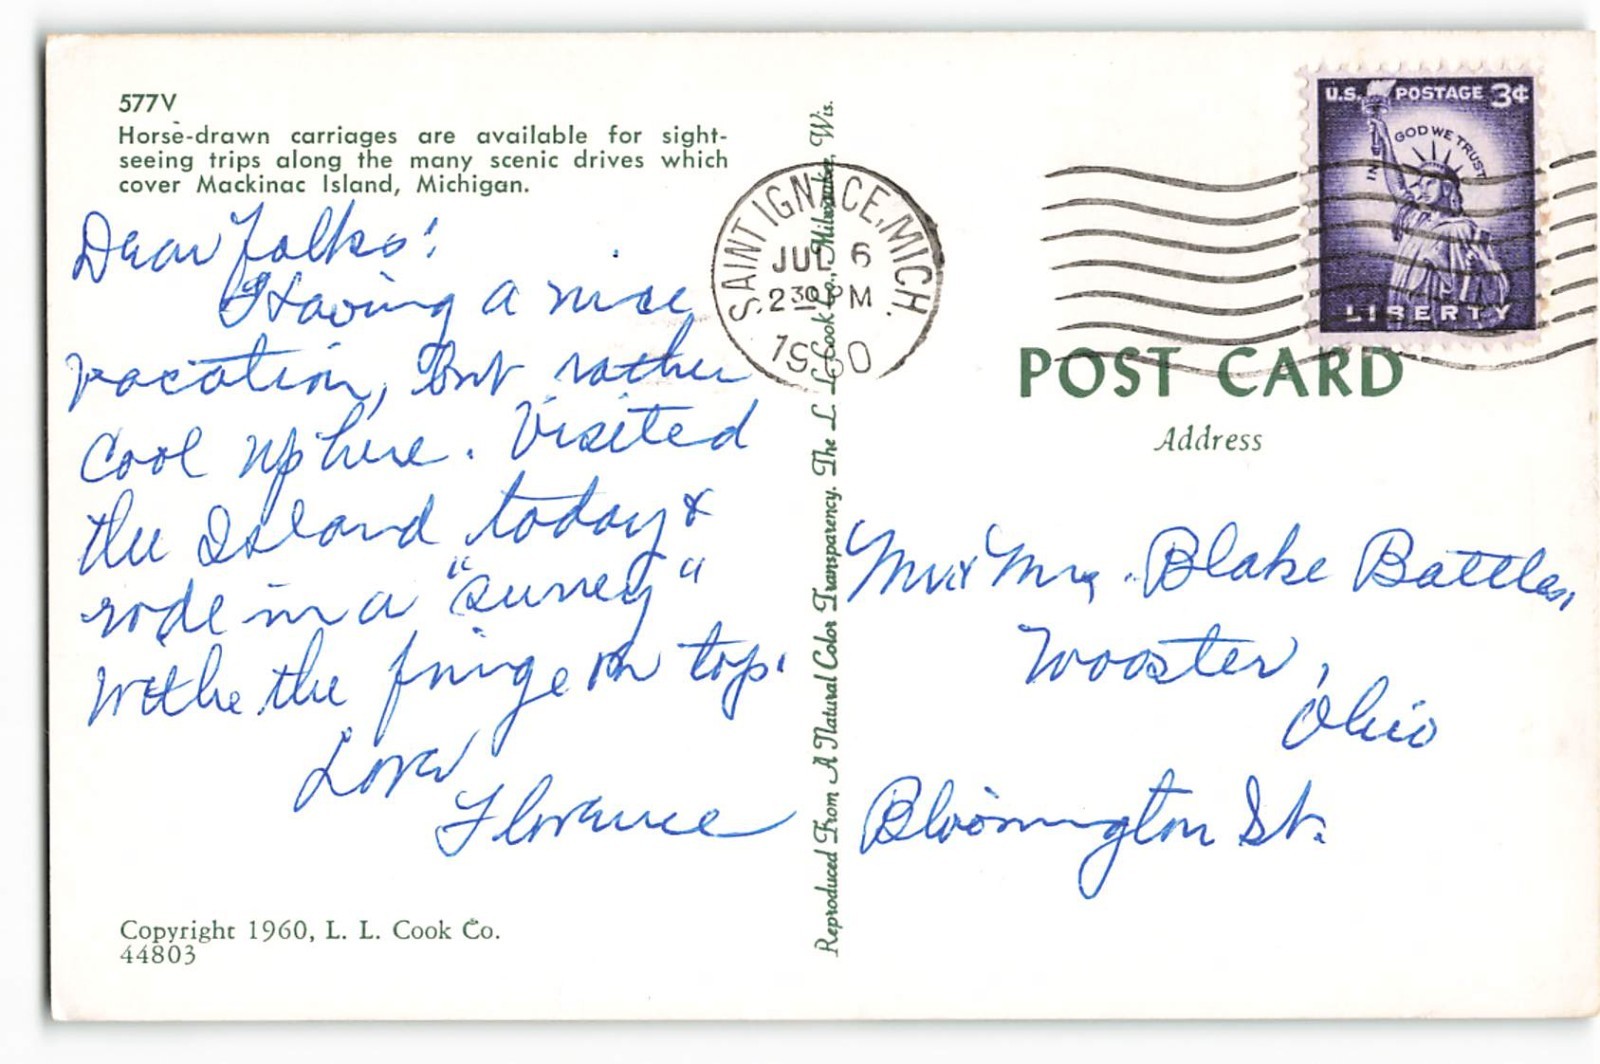 577V
Horse-drawn carriages are available for sight-
seeing trips along the many scenic drives which
cover Mackinac Island, Michigan.
Dear Folks!
Having a nice
vacation, but rather
cool up here. Visited
the Island today &
rode in a "surrey"
withe the fringe on top.
Love
Florence
Copyright 1960, L. L. Cook Co.
44803
Reproduced From A Natural Color Transparency. The L. L. Cook Co., Milwaukee, Wis.
SAINT IGNACE, MICH.
JUL 6
2 30 PM
1960
U.S. POSTAGE 3¢
IN GOD WE TRUST
LIBERTY
POST CARD
Address
Mr & Mrs. Blake Battles,
Wooster,
Ohio
Bloomington St.